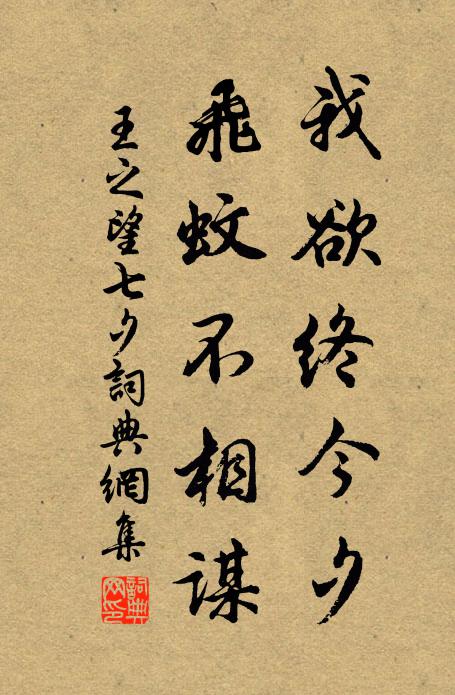 我欲終今夕
飛蚊不相謀
王之望七夕詞典網集
詞典网印